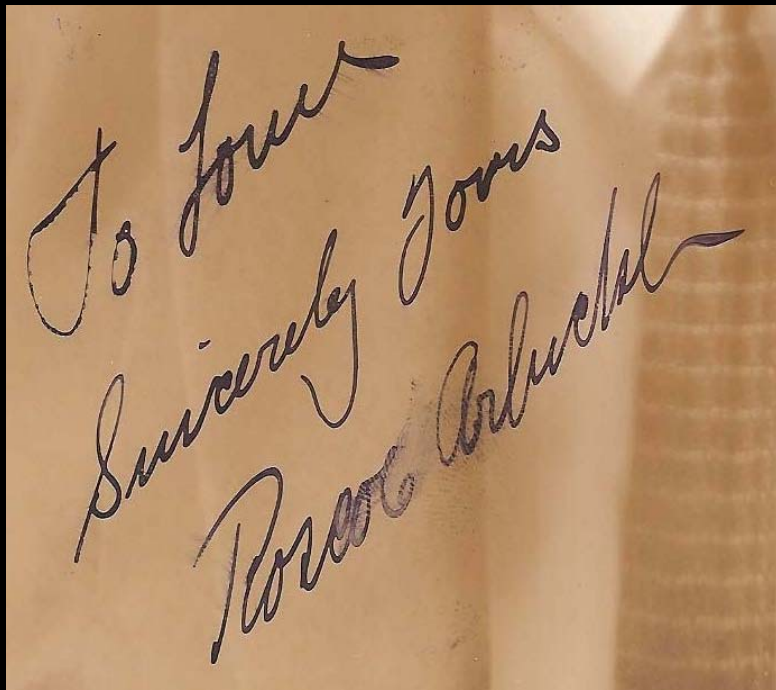 To Louis
Sincerely Yours
Roscoe Arbuckle